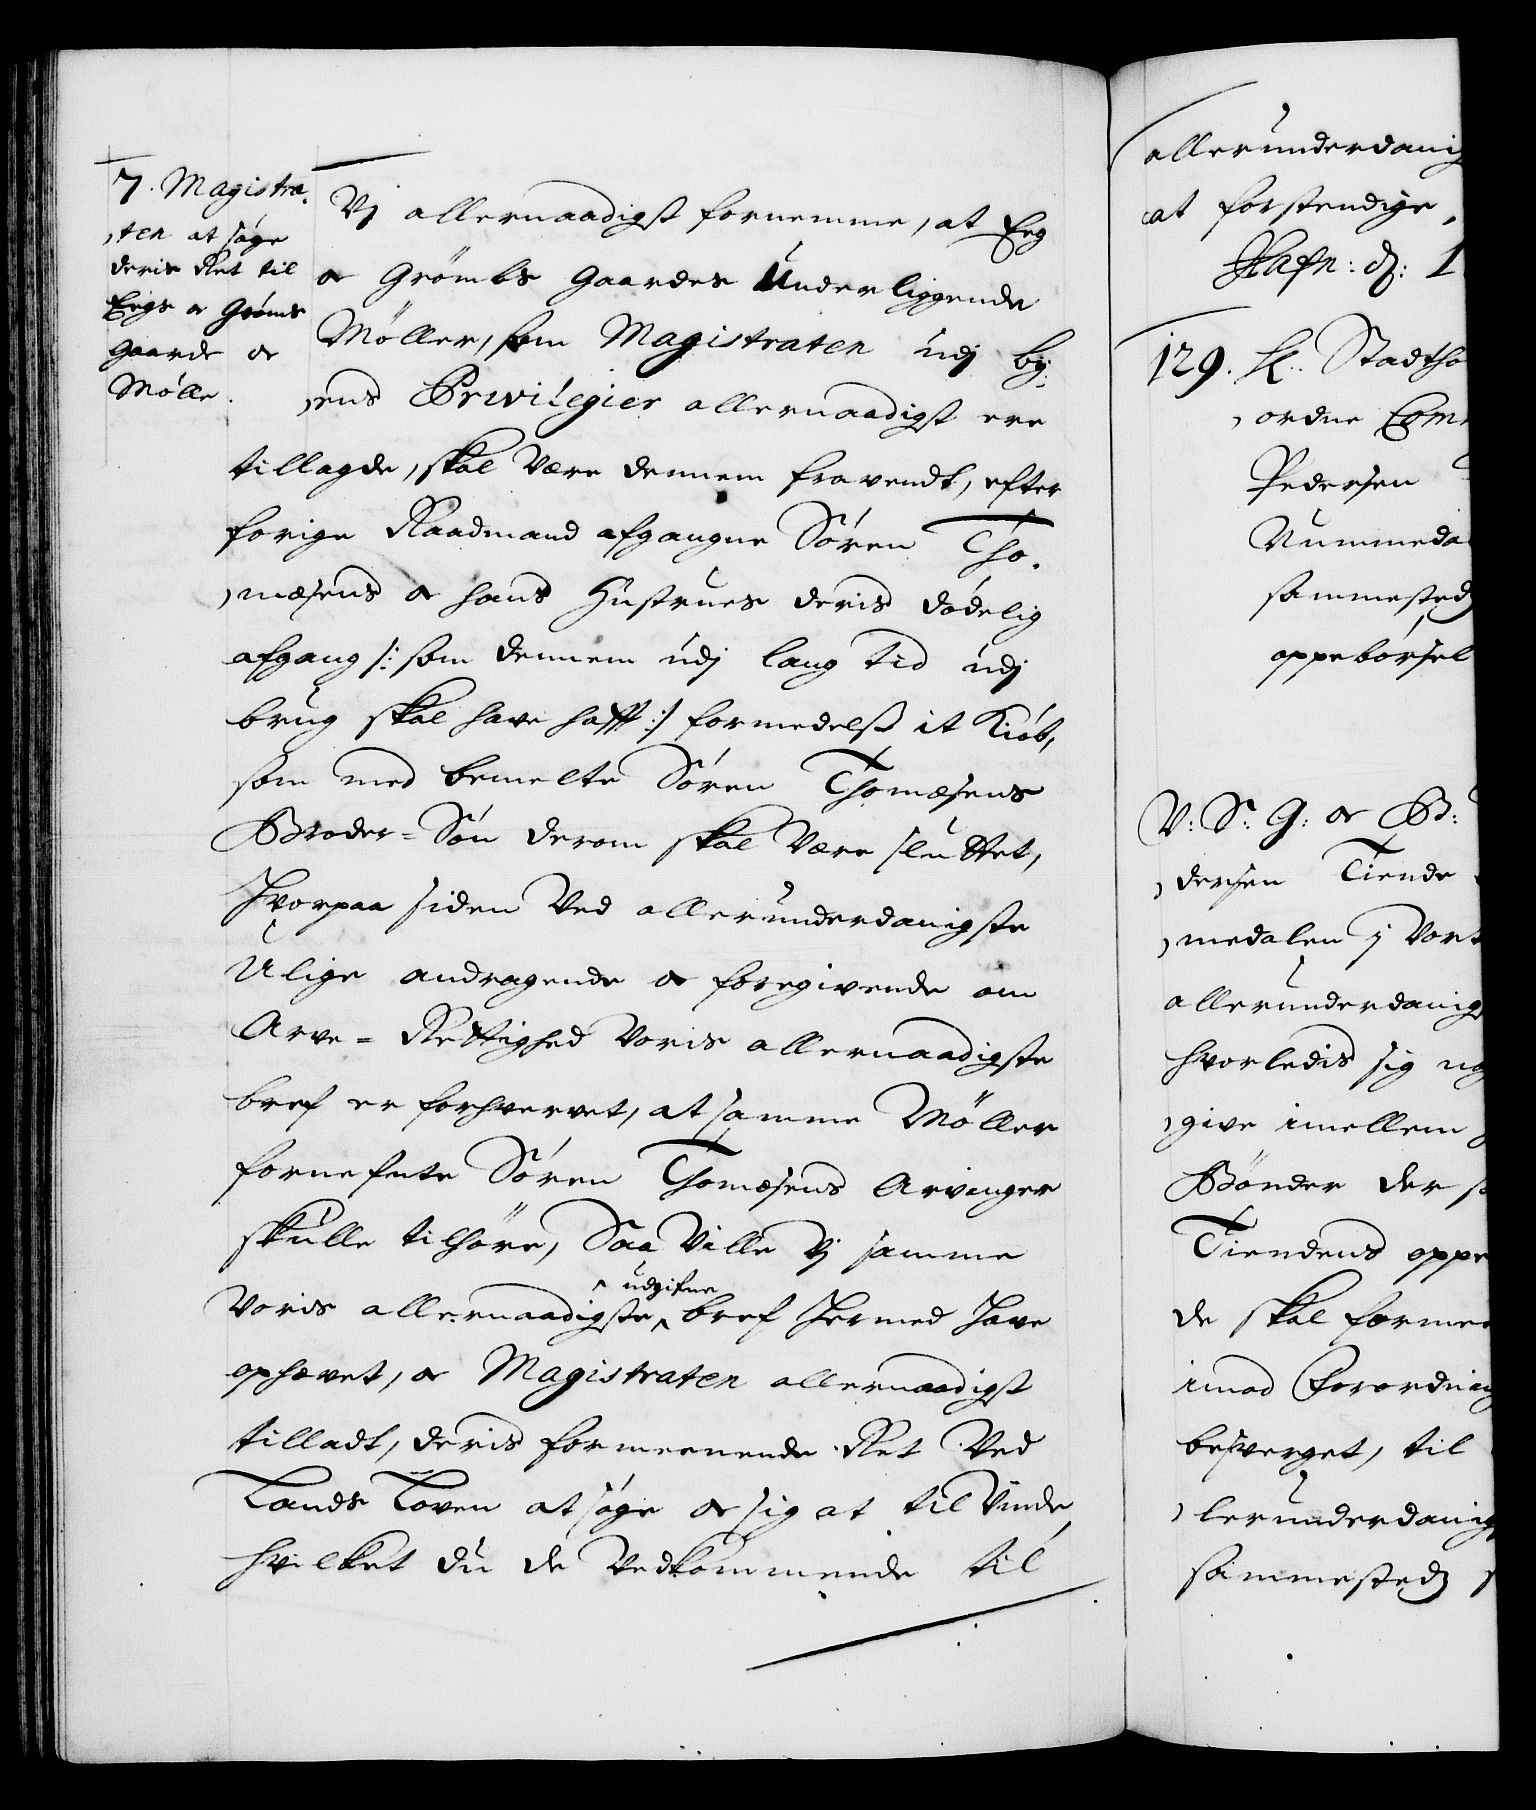 7. Magistra,
,ten at søge
deris Ret til
Eegs oc Grøms
Gaarde oc
Mølle.
Vj allernaadigst fornemme, at Eeg
oc Grømbs Gaardes Underliggende
Møller, som Magistraten udj by,
,ens Privilegier allernaadigst ere
tillagde, skal Være dennem fravendt, efter
forige Raadmand afgangne Sören Tho,
,mæsens oc hans Hustrues deris dødelig
afgang /: som dennem udj lang tid udj
brug skal have hafft :/ formedelst it Kiøb,
som med bemelte Sören Thomæsens
Broder-Søn derom skal Være sluttet,
Hvorpaa siden Ved allerunderdanigste
Ulige andragende oc foregivende om
Arve-Rettighed Voris allernaadigste
bref er forhvervet, at samme Möller
fornefnte Sören Thomæsens Arvinger
skulle tilhöre, Saa Ville Vj samme
udgifne
Voris allernaadigste bref Hermed Have
ophævet, oc Magistraten allernaadigst
tilladt, deris formeenende Ret Ved
Lands Loven at søge oc sig at til Vinde
hvilket du de Vedkommende til
allerunderdanig
at forstendige,
Hafn: d: 1
129. H. Stadtho
,ordne Com
Pedersen
Nummeda
sammested
oppebørsel
V: S: G: oc B:
,dersen Tiende
,medalen j Vort
allerunderdanigs
hvorledis sig
,give imellem
Bønder der
Tiendens oppe
de skal formee
imod Forordning
besverget, til
,lerunderdanig
sammested